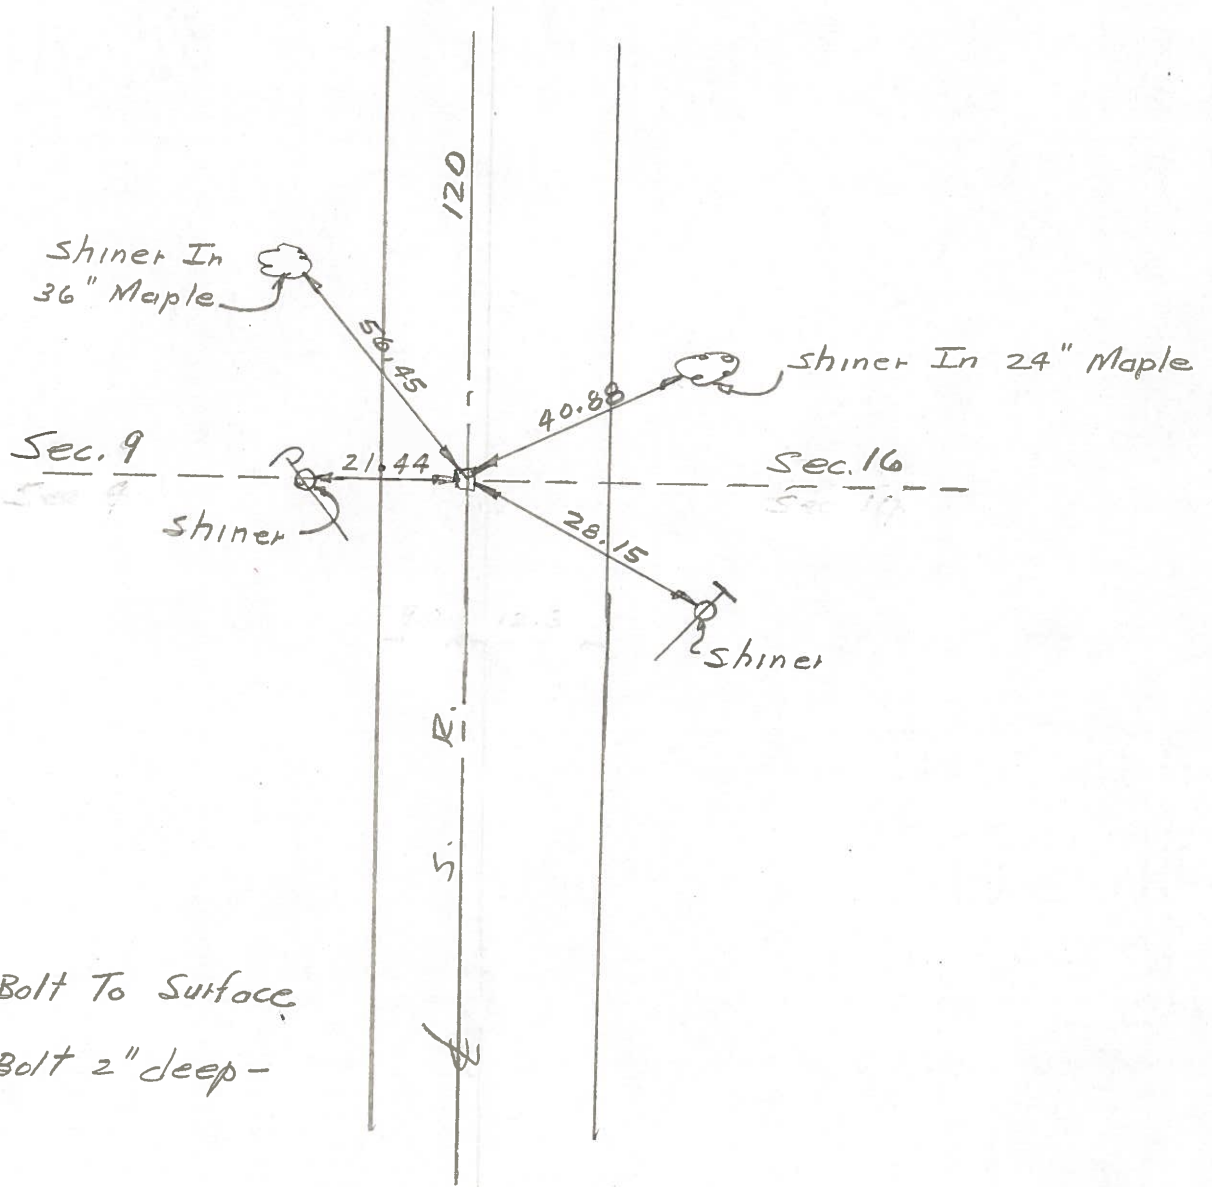 120
Shiner In
36" Maple
56.45
40.88
Shiner In 24" Maple
Sec. 9
21.44
Sec. 16
Shiner
28.15
Shiner
S. R.
Bolt To Surface
Bolt 2" deep-